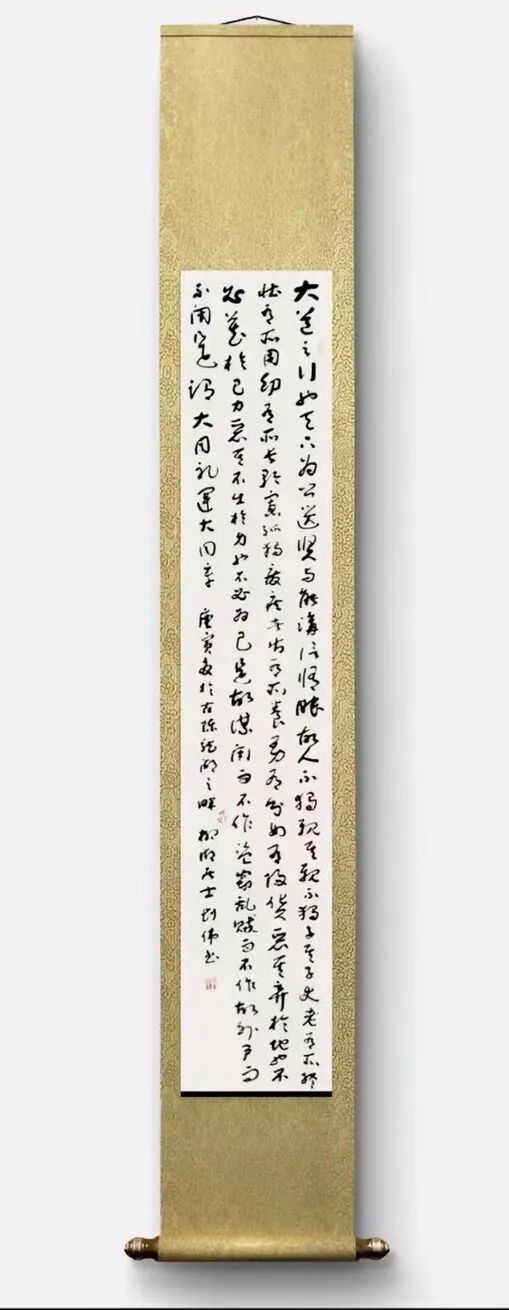 大道之行也天下為公選賢与能講信脩睦故人不獨親其親不獨子其子使老有所終
壯有所用幼有所長矜寡孤獨廢疾者皆有所養男有分女有歸貨惡其棄於地也不
必藏於己力惡其不出於身也不必為己是故謀閉而不作盜竊亂賊而不作故外戶而
不閉是謂大同礼運大同章 庚寅夏於古陳龍湖之畔 柳湖居士劉偉書